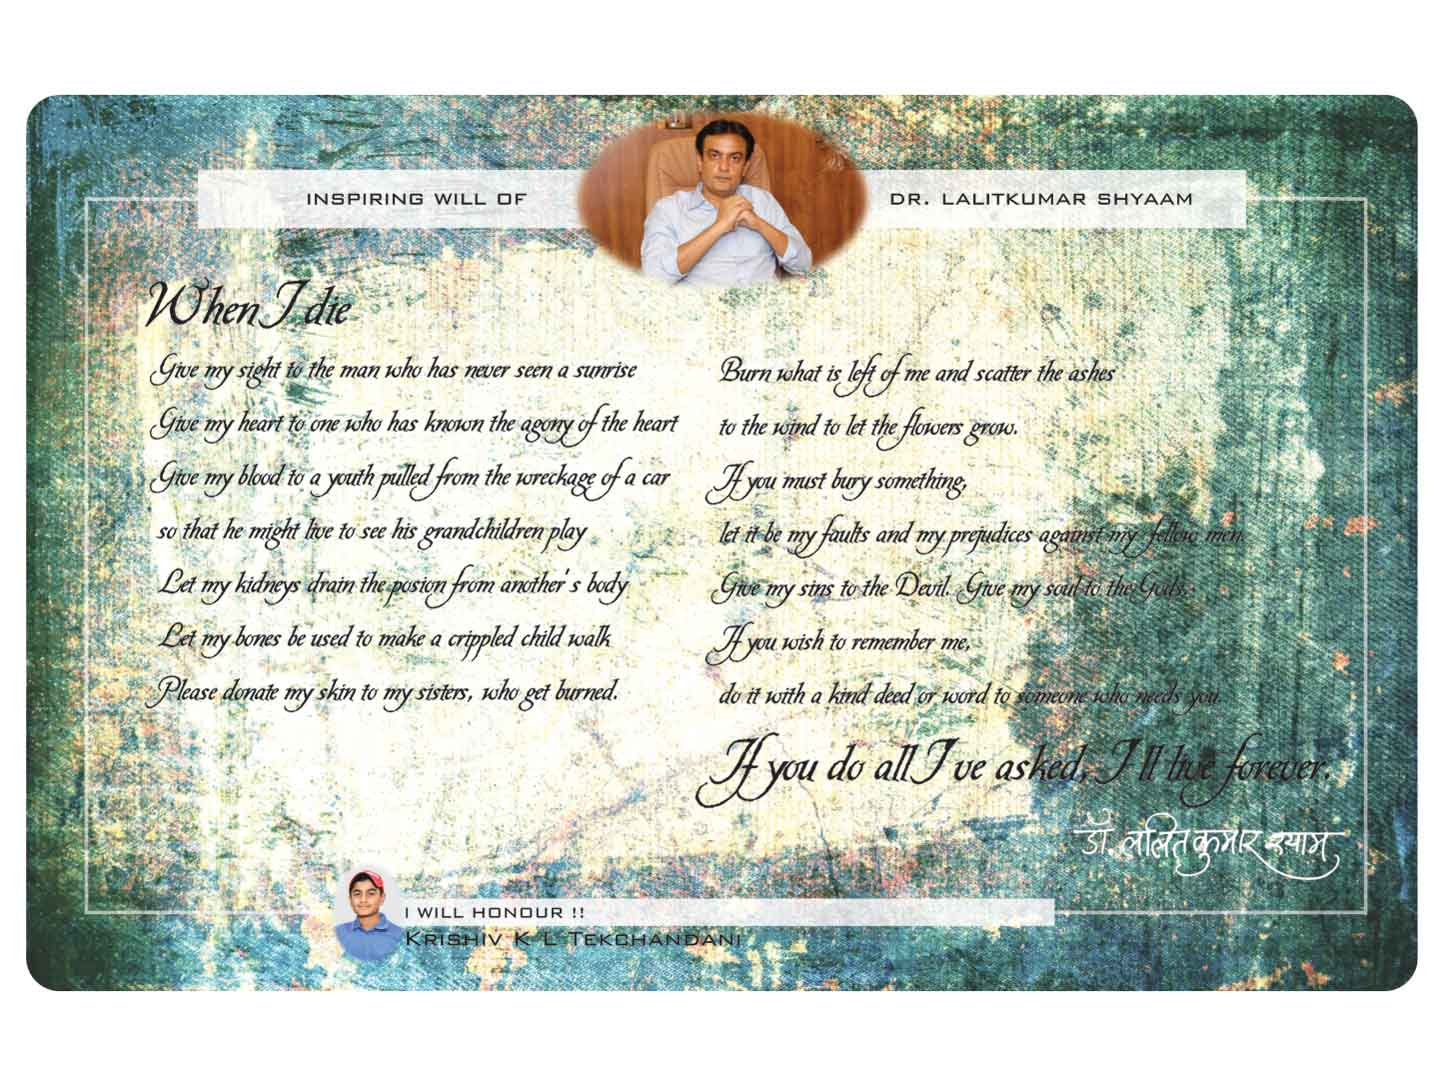 INSPIRING WILL OF DR. LALITKUMAR SHYAAM
When I die
Give my sight to the man who has never seen a sunrise
Give my heart to one who has known the agony of the heart
Give my blood to a youth pulled from the wreckage of a car
so that he might live to see his grandchildren play
Let my kidneys drain the posion from another's body
Let my bones be used to make a crippled child walk
Please donate my skin to my sisters, who get burned.
Burn what is left of me and scatter the ashes
to the wind to let the flowers grow.
If you must bury something,
let it be my faults and my prejudices against my fellow men.
Give my sins to the Devil. Give my soul to the Gods.
If you wish to remember me,
do it with a kind deed or word to someone who needs you.
If you do all I've asked, I'll live forever.
डॉ. ललित कुमार श्याम
I WILL HONOUR !!
KRISHIV K L TEKCHANDANI